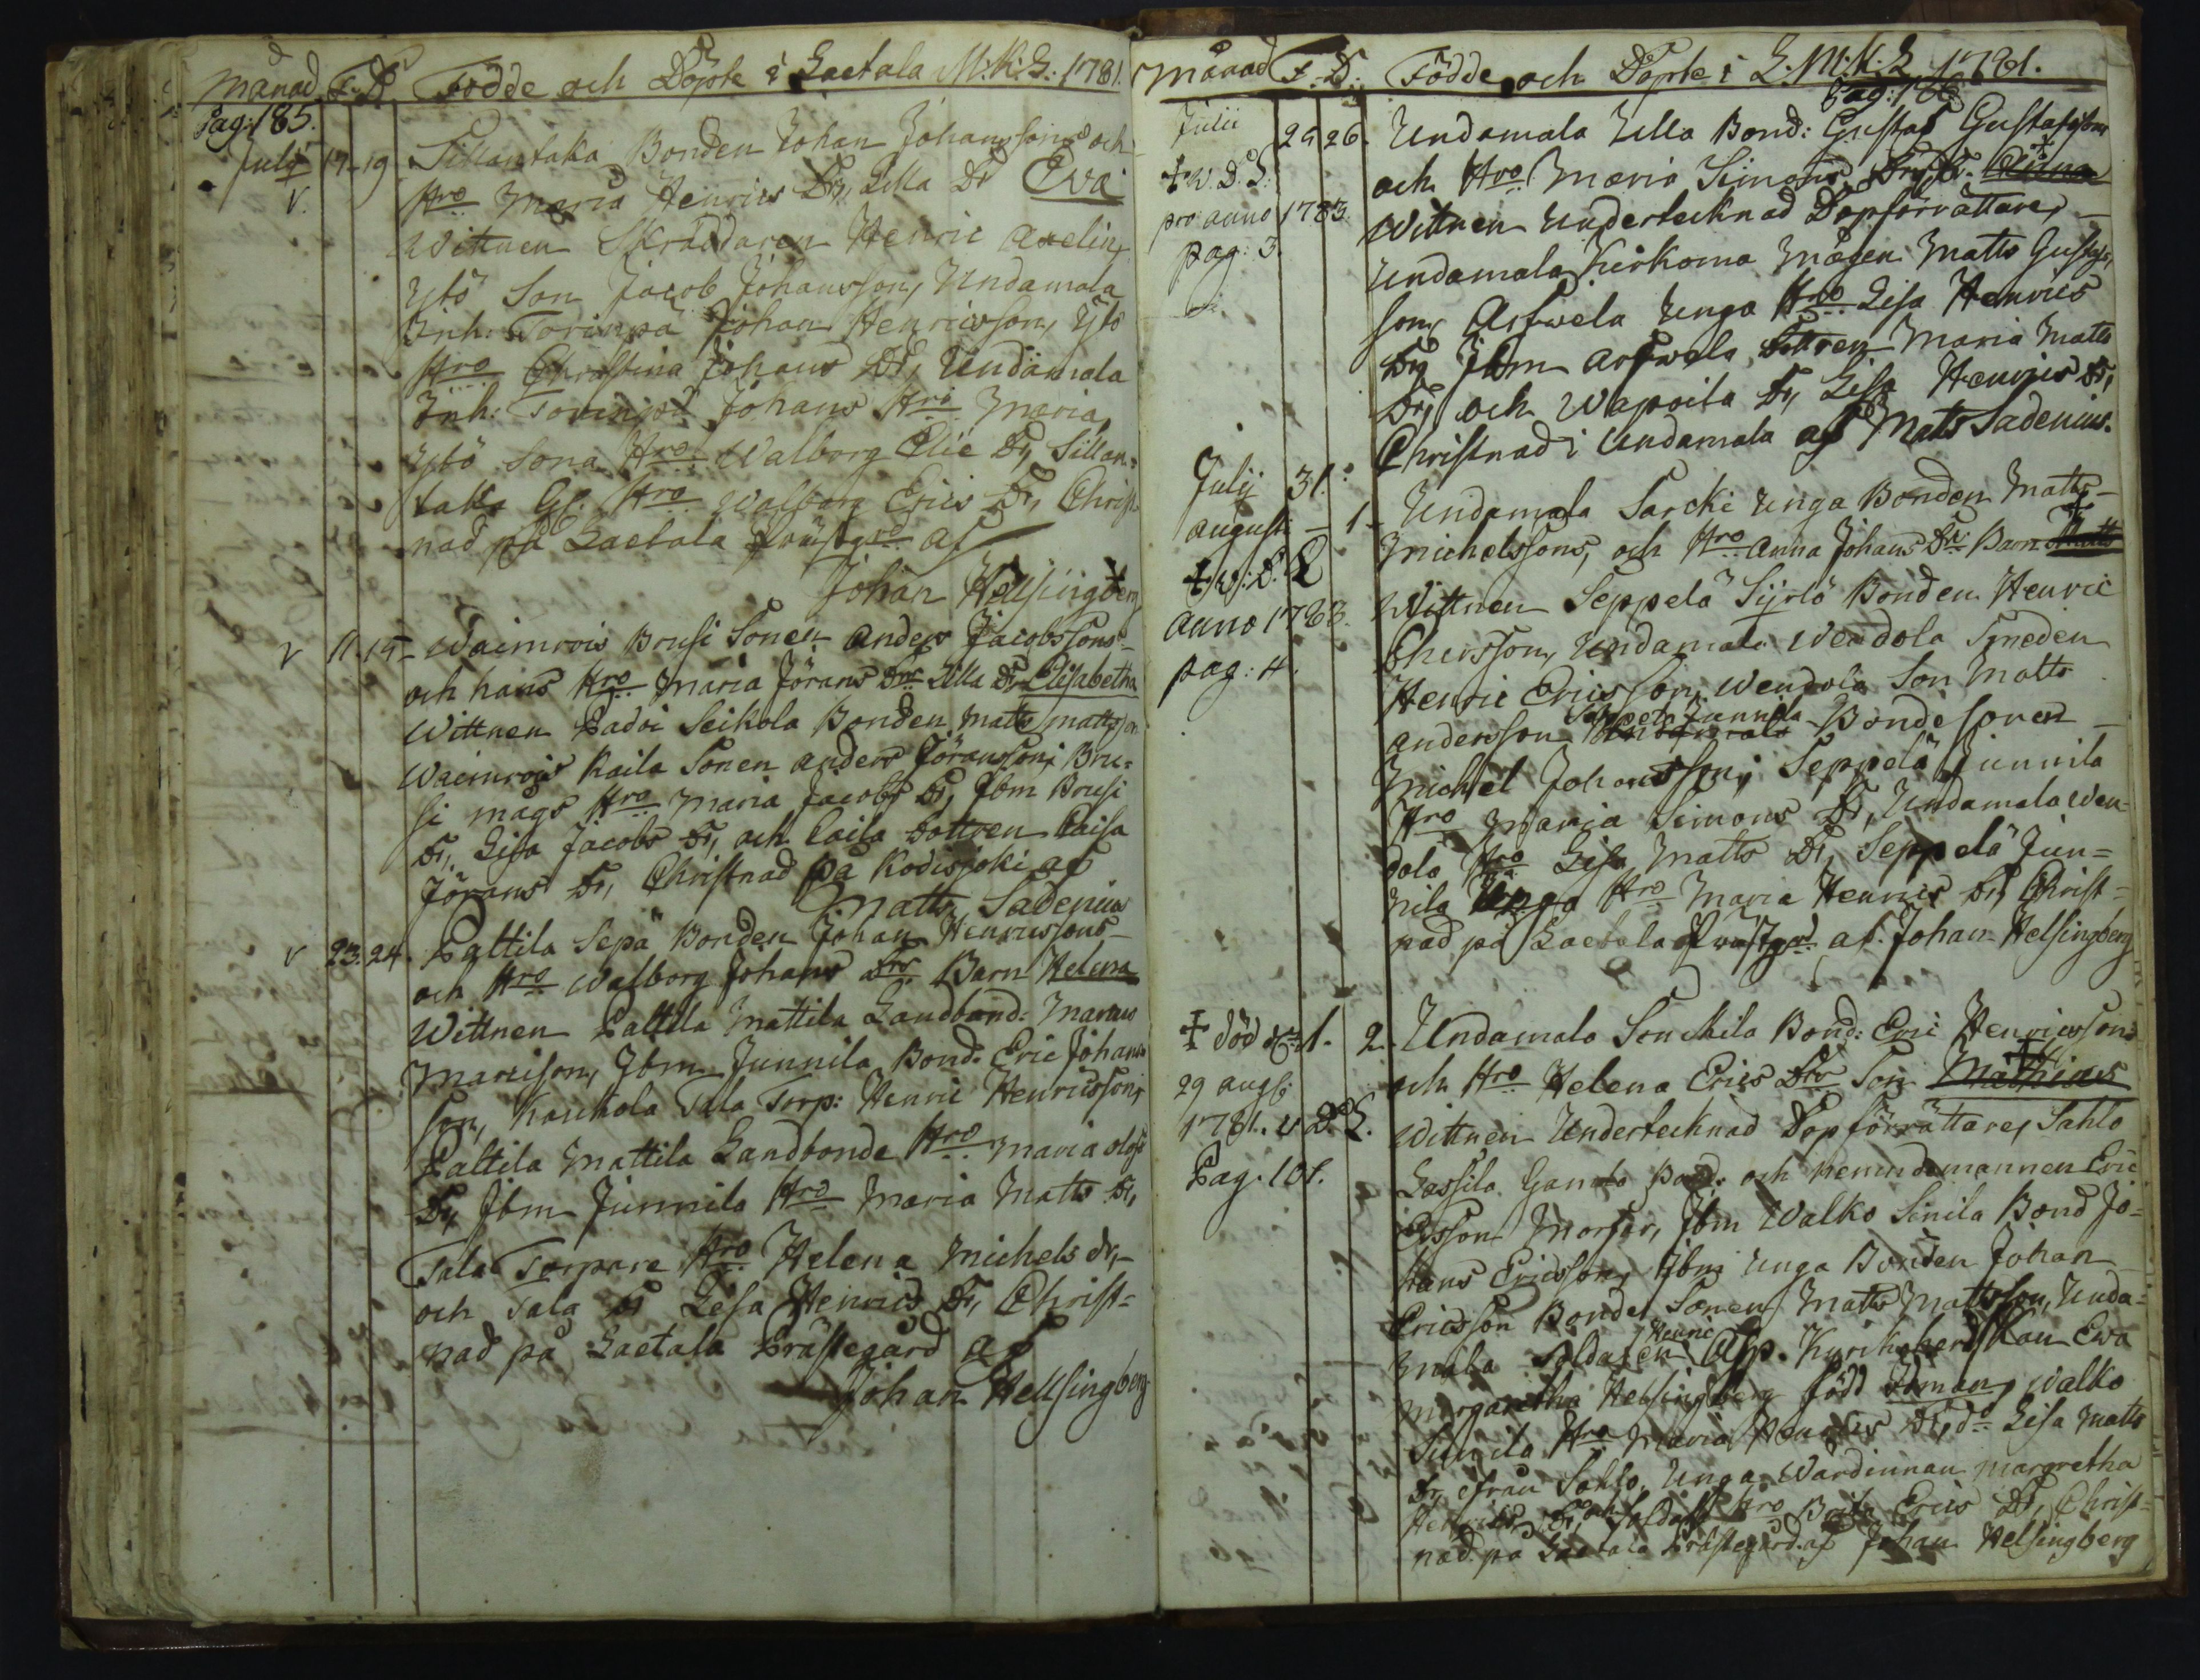 Månad F. D. Födde och Döpte i Laetala M:K:G: 1781.
Pag: 185.
Julij 17. 19 Sillantaka Bonden Johan Johanssons och
v. Hro Maria Henrics Drs, Lilla Dr Eva
Wittnen Skräddaren Henric Axelin,
Ytö Son Jacob Johansson, Undamala
Inh: Torinpä Johan Henricsson, Ytö
Hro Christina Johans Dr, Undamala
Inh: Torinpä Johans Hro Maria,
Ytö Sona Hro Walborg Elie Dr, Sillan-
taka Gl. Hro Walborg Erics Dr, Christ-
nad på Laetala Prästgrd af
Johan Hellsingberg
v 11. 15 Waimrois Brusi Sonen Anders Jacobssons
och hans Hro Maria Jörans Drs Lilla Dr Elisabetha
Wittnen Padoi Seikola Bonden Matts Mattsson
Waimrois Kaila Sonen Anders Jöransson, Bru-
si mågs Hro Maria Jacobs Dr, Ibm Brusi
Dr, Lisa Jacobs Dr, och Caila Dottren Caisa
Jörans Dr, Christnad på Kodisjoki af
Matts Sadenius
v 23. 24. Pattila Sepä Bonden Johan Henricssons
och Hro Walborg Johans Drs Barn Helena
Wittnen Paltila Mattila Landbond: Marcus
Marcison, Ibm Junnila Bond. Eric Johans
son, Kaukola Tala Torp: Henric Henricsson,
Paltila Mattila Landbonde Hro Maria Olofs
Dr, Ibm Junnila Hro Maria Matts Dr,
Tala Torpare Hro Helena Michels dr,
och Tala Dr Lisa Henrics Dr, Christ-
nad på Laetala Prästegård af
Johan Hellsingberg
Månad F. D. Födde och Döpte i L: M: K: G 1781.
Pag: 186
Julii 25 26. Undamala Ulla Bond: Gustaf Gustafsson
✝ W. D. L: och Hro Maria Simons Drs, Dr. Anna
pro anno 1783. Wittnen Undertecknad Dopförrättare,
pag: 3. Undamala Kirkoma Mågen Matts Gustafs
son, Arfwela Unga Hro Lisa Henrics
Dr, Ibm Arfwela Dottren Maria Matts
Dr, och Wapoila Dr, Lisa Henrics Dr,
Christnad i Undamala af Matts Sadenius.
Julij 31.
August: 1 Undamala Sarcki Unga Bonden Matts
✝ W: D: L Michelssons, och Hro Anna Johans Drs Barn Matts
anno 1783. Wittnen Seppelä Sijrlö Bonden Henric
pag: 4. Undamala Wendola Smeden
Henric Ericsson, Wendola Son Matts
Andersson Seppelä Junnila Bonde sonen
Michel Johansson, Seppelä Junnila
Hro Maria Simons Dr, Undamala Wen-
dola Hro Lisa Matts Dr, Seppelä Jun-
nila Unga Hro Maria Henrics Dr, Christ-
nad på Laetala Prästgrd af Johan Helsingberg
✝ död d. 1. 2. Undamala Bond: Eric Henricssons
29 aug: och Hro Helena Erics Drs Son Mathias
1781. v. D. L. Wittnen Undertecknad Dopförrättare, Sahlo
Pag. 101. Lassila Gamla Bond. och nemndemannen Eric
Morfar, Ibm Walko Simila Bond Jo-
hans Ericsson, Ibm Unga Bonden Johan
Ericsson Bonde Sonen Matts Mattsson, Unda-
mala Soldaten Henric Asp. Kyrkoherdskan Ewa
Margaretha Hellsingberg född Idman, Walko
Simila Hro Maria Henrics Dr, do Lisa Matts
Dr, ifrån Sahlo, Unga Wardinnan Margretha
Henrics Dr, och Soldat Hro Brita Erics Dr, Christ-
nad på Laetala Prästegård af Johan Helsingberg